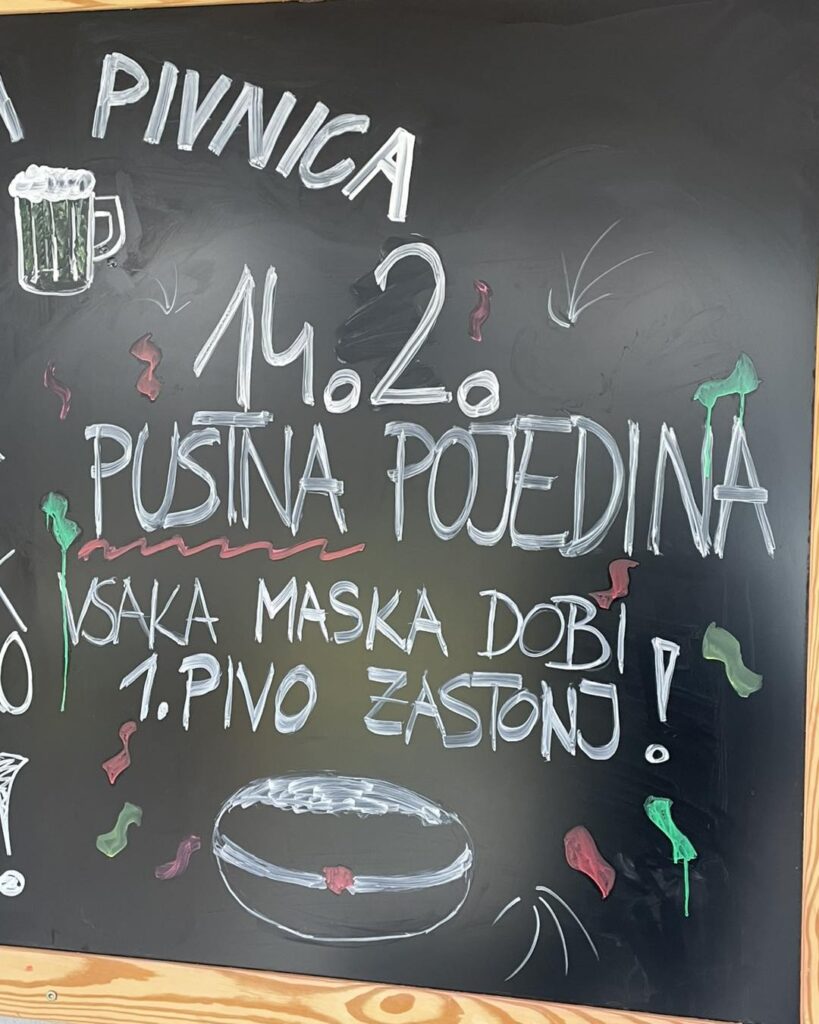 PIVNICA
14.2.
PUSTNA POJEDINA
VSAKA MASKA DOBI
1. PIVO ZASTONJ!